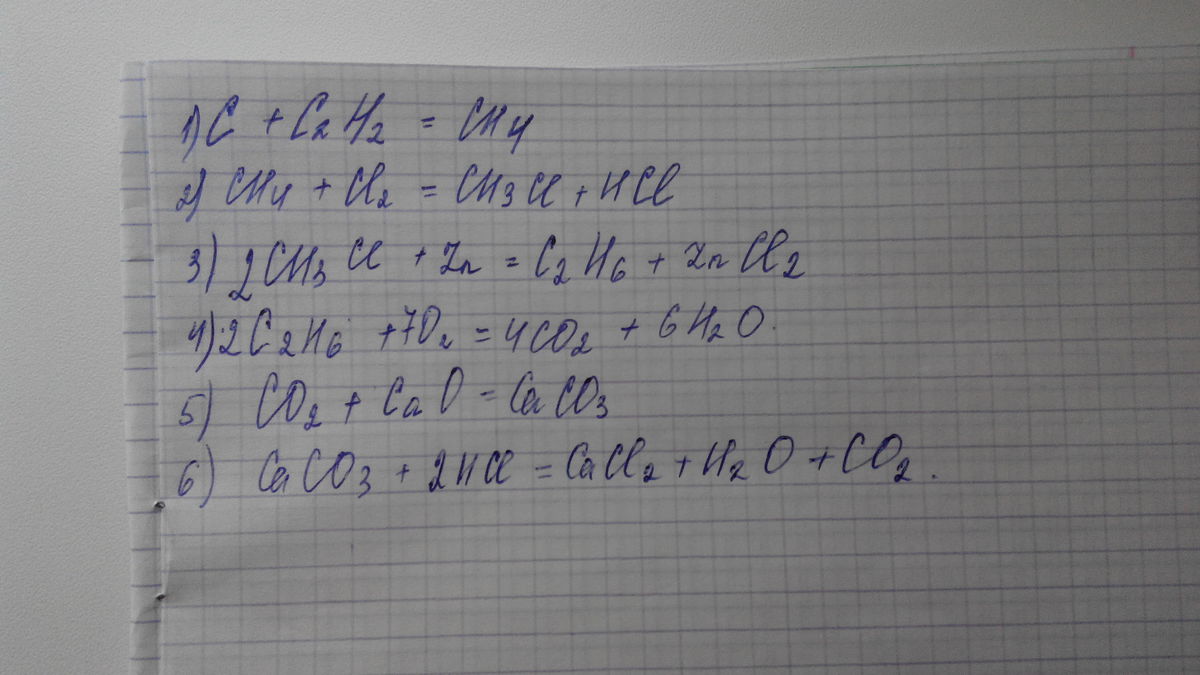 1) C + C2H2 = CH4
2) CH4 + Cl2 = CH3Cl + HCl
3) 2CH3Cl + Zn = C2H6 + ZnCl2
4) 2C2H6 + 7O2 = 4CO2 + 6H2O.
5) CO2 + CaO = CaCO3
6) CaCO3 + 2HCl = CaCl2 + H2O + CO2.